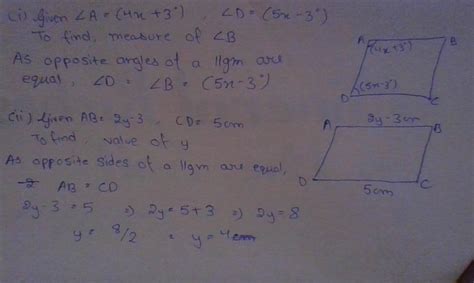 (i) Given ∠A = (4x + 3°) , ∠D = (5x - 3°)
To find, measure of ∠B
As opposite angles of a llgm are
equal, ∠D = ∠B = (5x - 3°)
A
B
(4x + 3°)
(5x - 3°)
D
C
(ii) Given AB = 2y - 3 , CD = 5cm
To find, value of y
As opposite sides of a llgm are equal,
AB = CD
2y - 3 = 5 ⇒ 2y = 5 + 3 ⇒ 2y = 8
y = 8/2 = y = 4
A
2y - 3cm
B
D
5cm
C